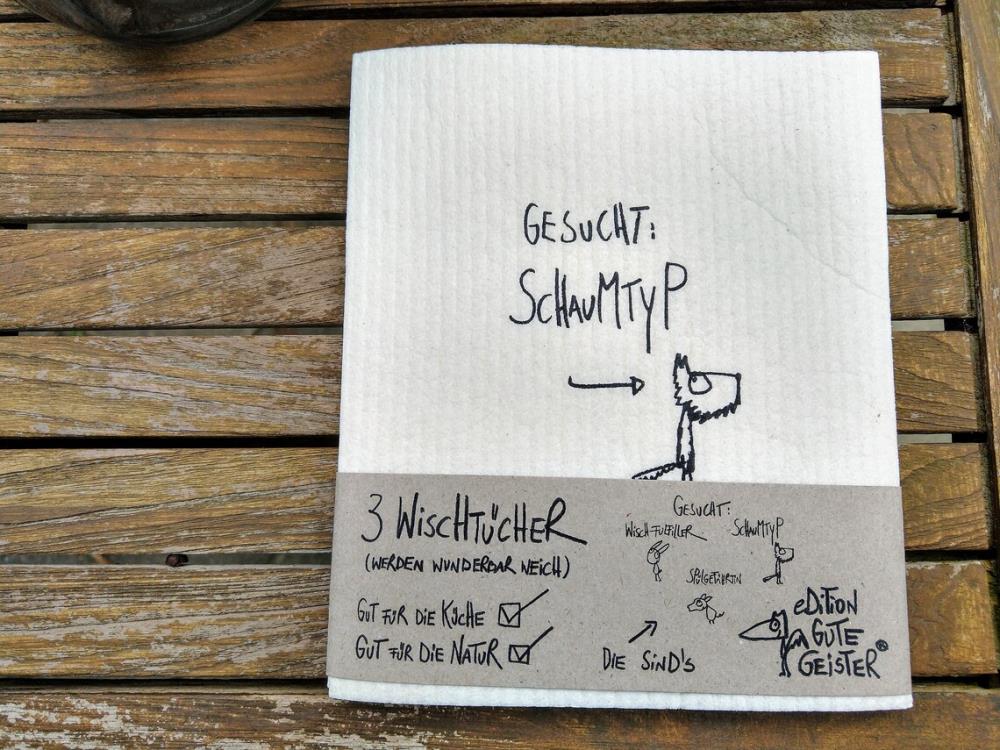 GESUCHT:
SCHAUMTYP
3 WISCHTÜCHER
(WERDEN WUNDERBAR WEICH)
GUT FÜR DIE KÜCHE
GUT FÜR DIE NATUR
GESUCHT:
WISCH-FULFILLER
SCHAUMTYP
SPÜLGEFÄHRTIN
DIE SIND'S
eDITION
GUTE
GEISTER®